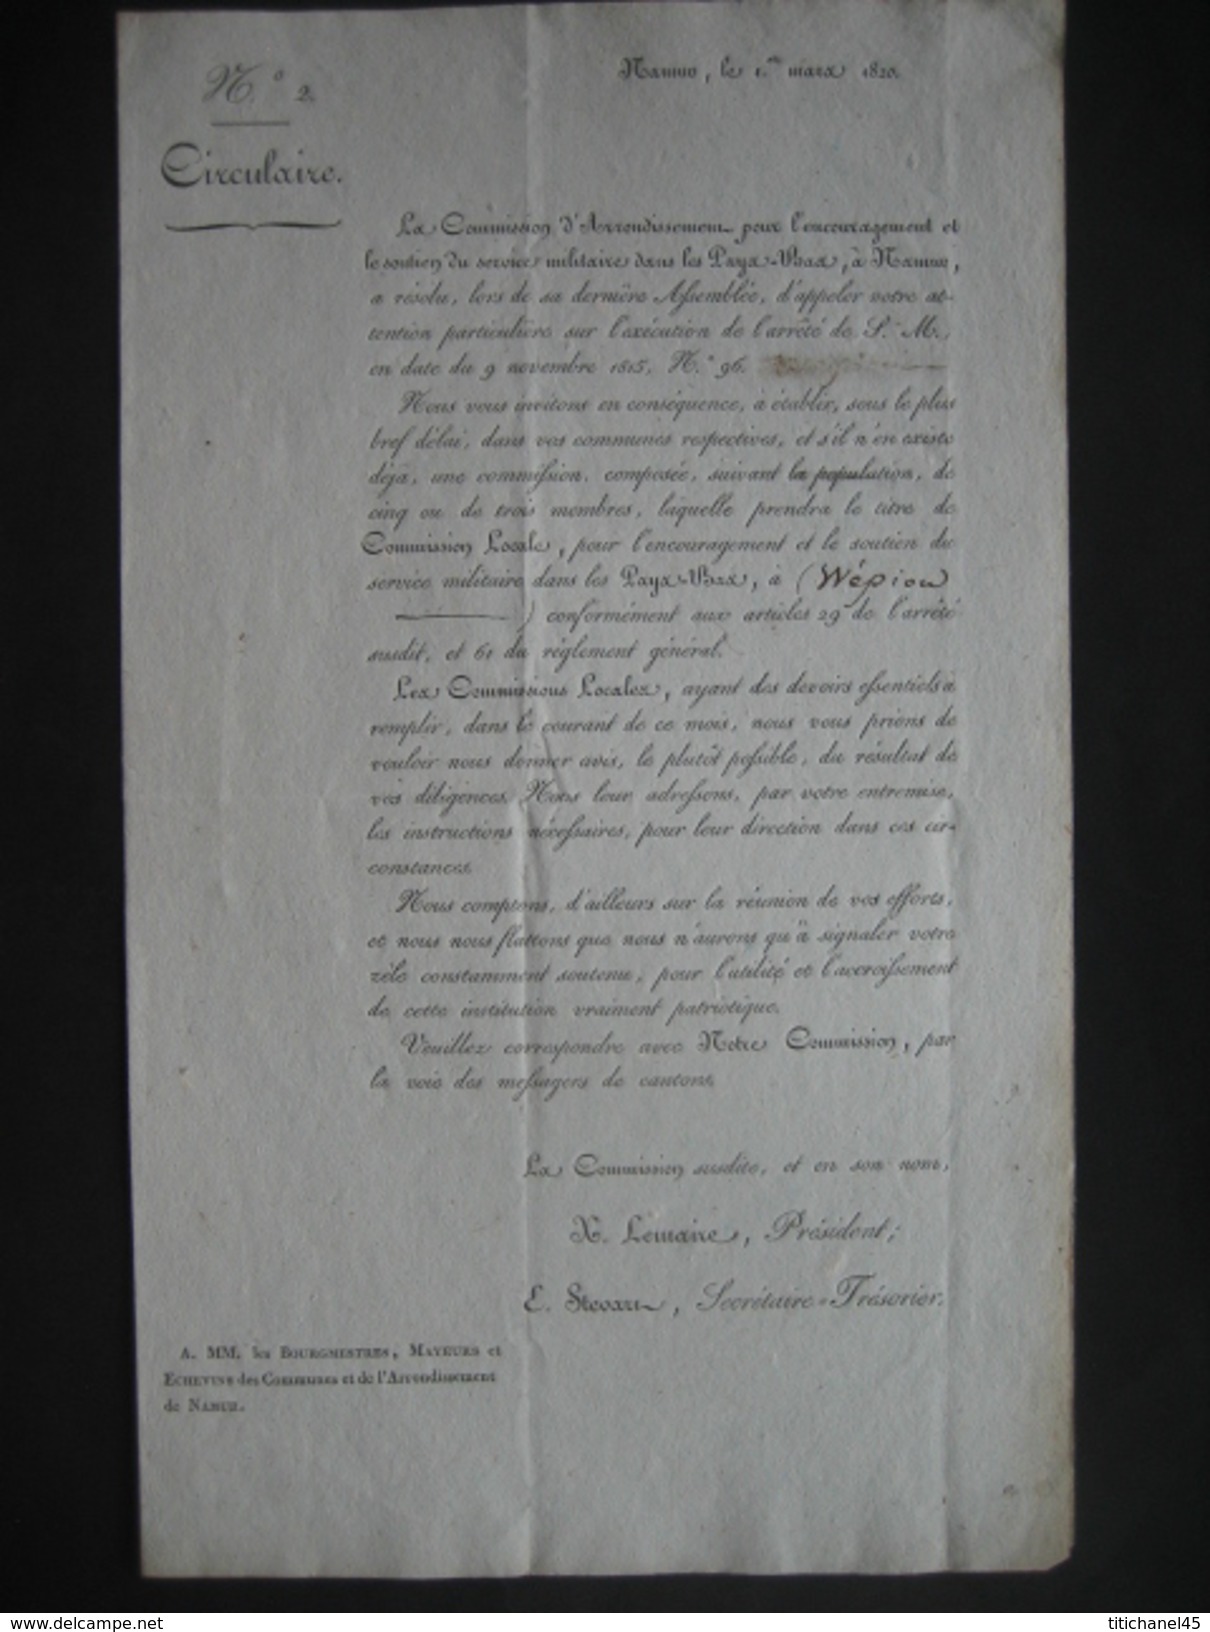 N.º 2.
Circulaire.
Namur, le 1.er mars 1820.
La Commission d'Arrondissement pour l'encouragement et
le soutien du service militaire dans les Pays-Bas, à Namur,
a résolu, lors de sa dernière Assemblée, d'appeler votre at-
tention particulière sur l'exécution de l'arrêté de S. M.,
en date du 9 novembre 1815, N.º 96.
Nous vous invitons en conséquence, à établir, sous le plus
bref délai, dans vos communes respectives, et s'il n'en existe
déjà, une commission, composée, suivant la population, de
cinq ou de trois membres, laquelle prendra le titre de
Commission Locale, pour l'encouragement et le soutien du
service militaire dans les Pays-Bas, à (Wépion
) conformément aux articles 29 de l'arrêté
susdit, et 61 du réglement général.
Les Commissions Locales, ayant des devoirs essentiels à
remplir, dans le courant de ce mois, nous vous prions de
vouloir nous donner avis, le plutôt possible, du résultat de
vos diligences. Nous leur adressons, par votre entremise,
les instructions nécessaires, pour leur direction dans ces cir-
constances.
Nous comptons, d'ailleurs sur la réunion de vos efforts,
et nous nous flattons que nous n'aurons qu'à signaler votre
zèle constamment soutenu, pour l'utilité et l'accroissement
de cette institution vraiment patriotique.
Veuillez correspondre avec Notre Commission, par
la voie des messagers de cantons.
La Commission susdite, et en son nom,
X. Lemaire, Président;
E. Stevart, Secrétaire-Trésorier.
A. MM. les Bourgmestres, Mayeurs et
Echevins des Communes et de l'Arrondissement
de Namur.
delcampe.net
titichanel45